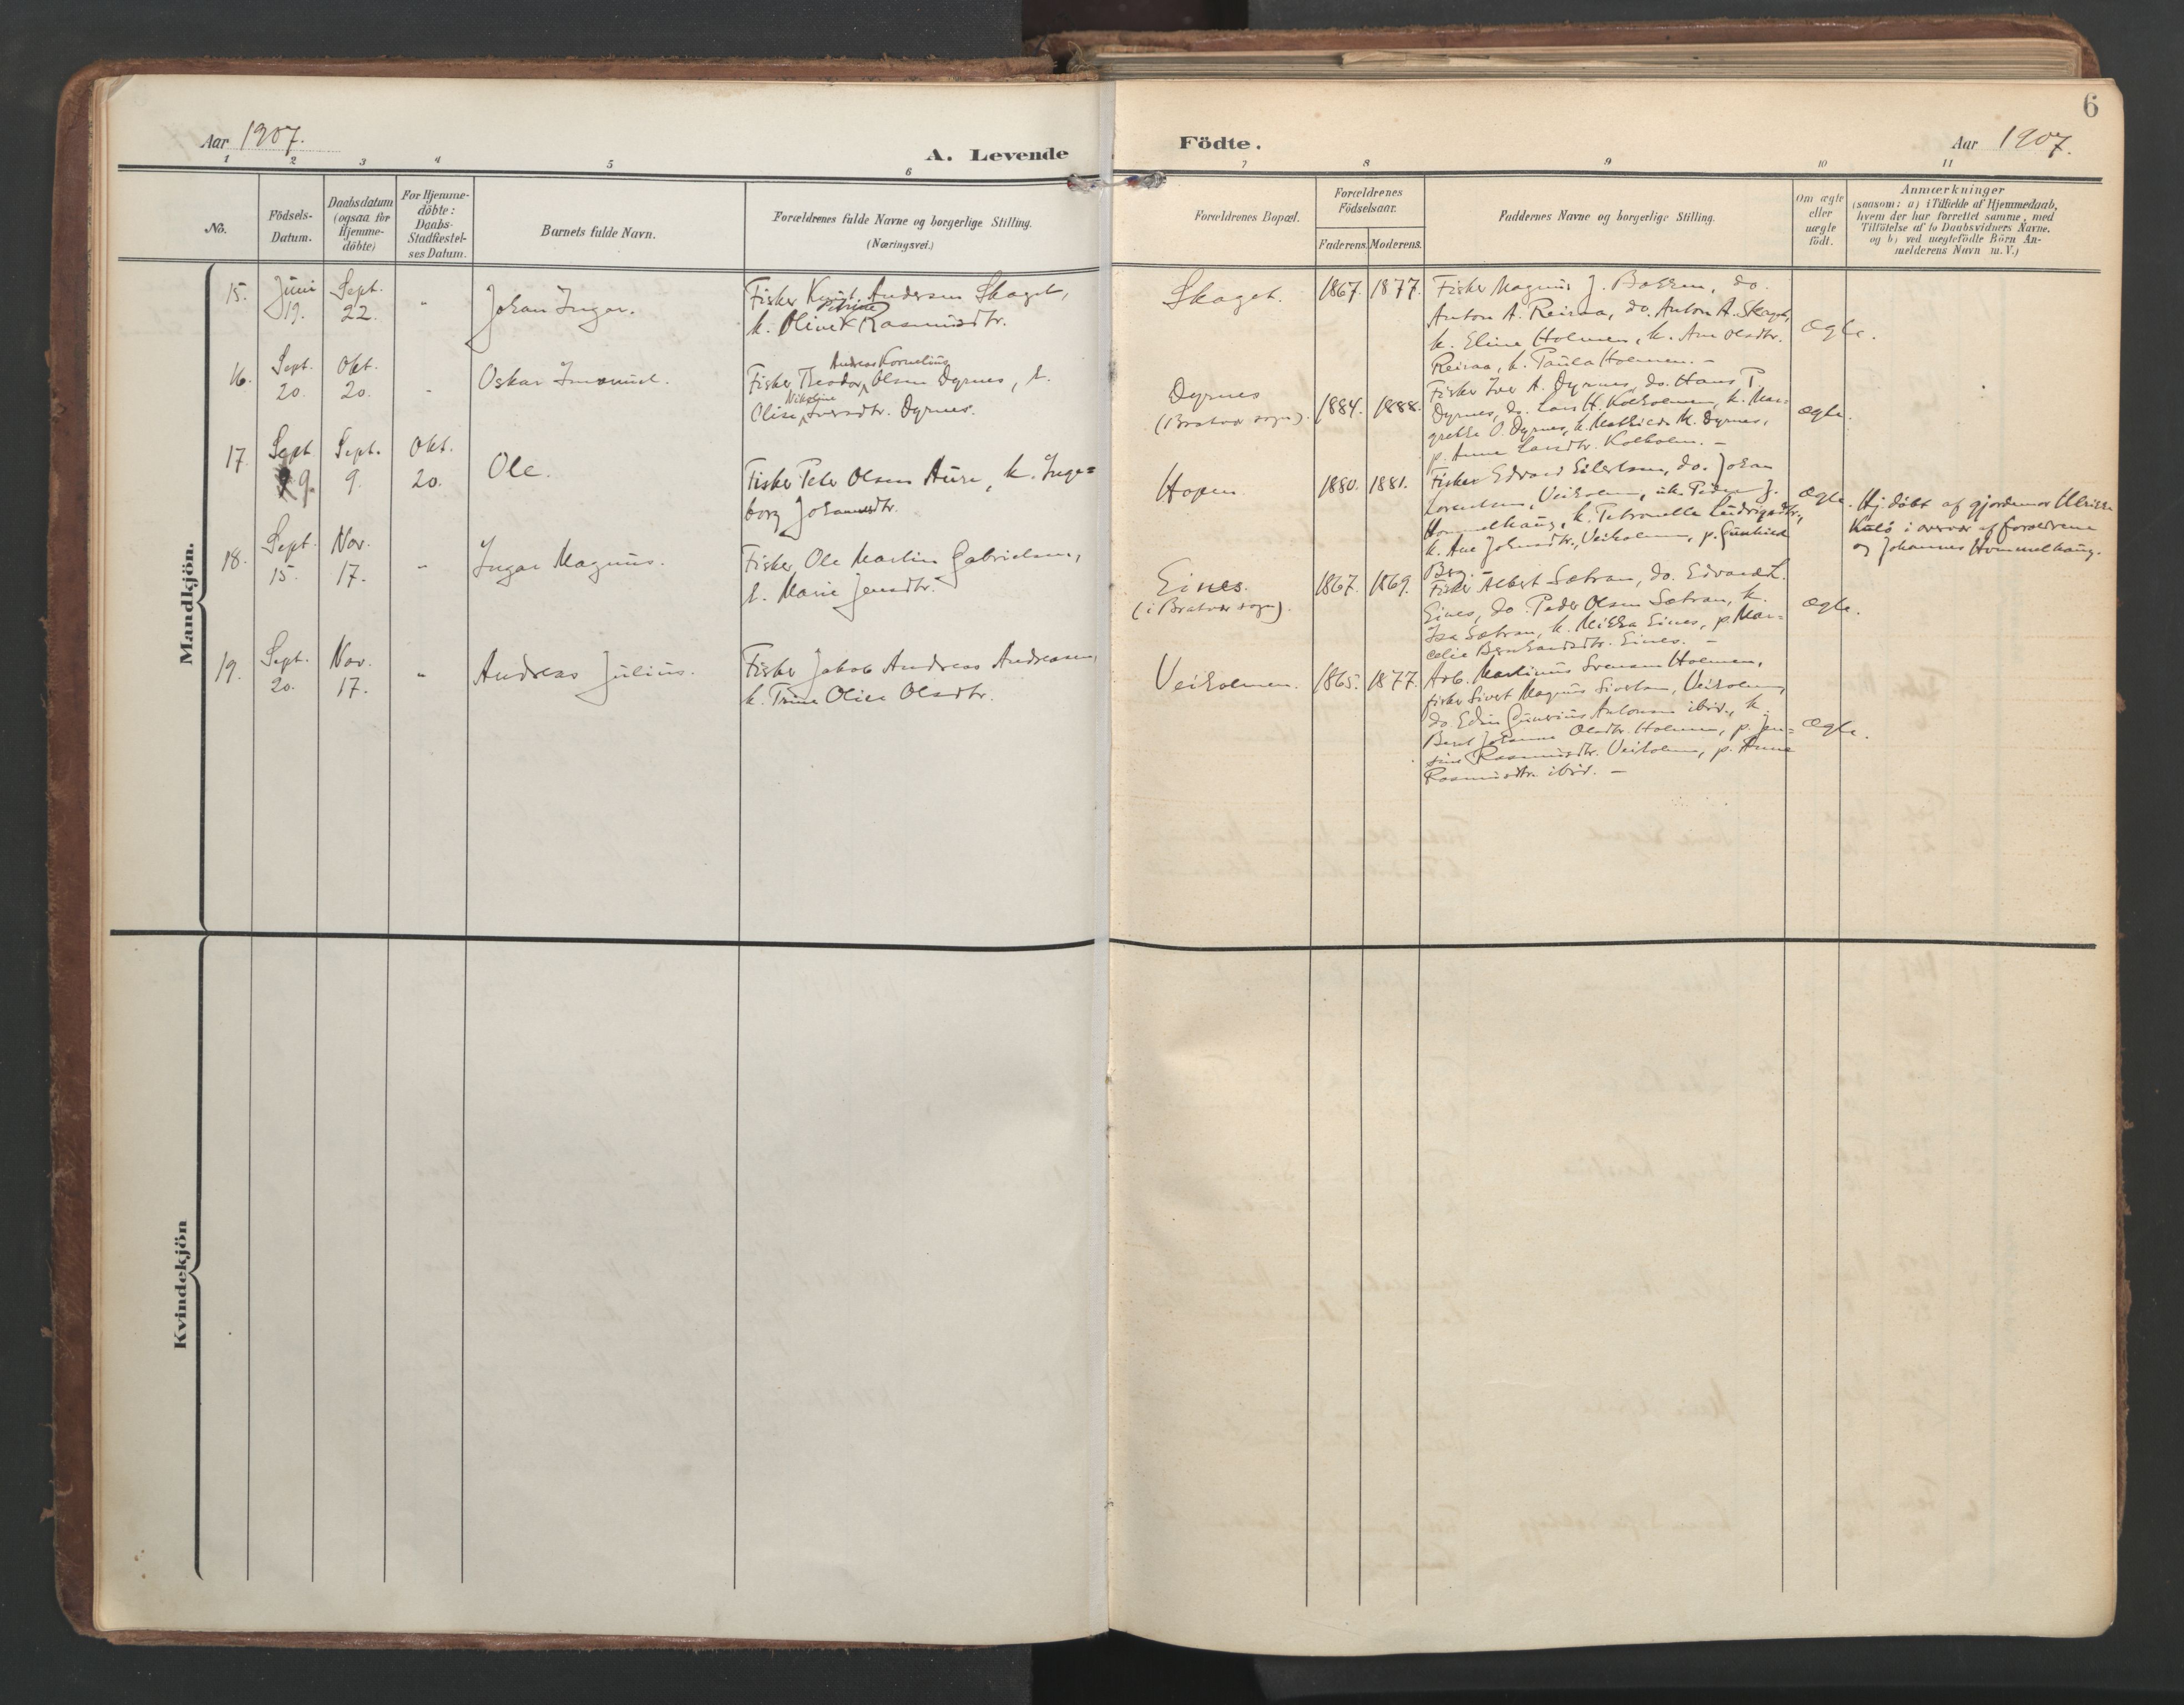 6
Aar 1907.
A. Levende
Födte.
Aar 1907.
1 2 3 4 5 6 7 8 9 10 11
No.
Födsels-
Datum.
Daabsdatum
(ogsaa for
Hjemme-
döbte)
For Hjemme-
döbte:
Daabs-
Stadfæstel-
ses Datum.
Barnets fulde Navn.
Forældrenes fulde Navne og borgerlige Stilling.
(Næringsvei.)
Forældrenes Bopæl.
Forældrenes
Födselsaar.
Faderens. Moderens.
Faddernes Navne og borgerlige Stilling.
Om ægte
eller
uægte
födt.
Anmærkninger
(saasom: a) i Tilfælde af Hjemmedaab,
hvem der har forrettet samme, med
Tilföielse af to Daabsvidners Navne.
og b) ved uægtefödte Börn An-
melderens Navn m. V.)
Mandkjön.
15.
Juni
19.
Sept.
22.
"
Johan Ingar.
Fisker Andersen Skaget,
Petrine
k. Oline Rasmusdtr.
Skaget.
1867. 1877.
Fisker Magnus J. Bakken, do.
Anton A. Reiraa, do. Anton A. Skaget,
k. Eline Holmen, k. Ane Olsdtr.
Reiraa, k. Paula Holmen. –
Ægte.
16.
Sept.
20.
Okt.
20.
"
Oskar
Andreas Kornelius
Fisker Theodor Olsen Dyrnes, k.
Nikoline
Elise Iversdtr. Dyrnes.
Dyrnes
(Bratvær sogn).
1884. 1888.
Fisker Iver A. Dyrnes, do. Hans P.
Dyrnes, do. Lars H. Kolholmen, k. Mar-
grethe O. Dyrnes, k. Mathilde M. Dyrnes,
p. Anna Larsdtr. Kolholm. –
Ægte.
17.
Sept.
9.
Sept.
9.
Okt.
20.
Ole.
Fisker Peter Olsen Aure, k. Inge=
borg Johannesdtr.
Hopen.
1880. 1881.
Fisker Edvard Eilertsen, do. Johan
Lorentsen, Veiholmen, uk. Peder J.
Hommelhaug, k. Petronelle Ludvigsdtr.,
k. Ane Johnsdtr., Veiholmen, p. Gunhild
Berg. –
Ægte.
Hj. döbt af gjordemor Ulrikke
Kulö i overvær af forældrene
og Johannes Hommelhaug.
18.
Sept.
15.
Nov.
17.
"
Ingar Magnus.
Fisker Ole Martin Gabrielsen,
k. Marie Jensdtr.
Eines.
(i Bratvær sogn).
1867. 1869.
Fisker Albert Sætran, do. Edvard L.
Eines, do. Peder Olsen Sætran, k.
Sætran, k. Mikka Eines, p. Mar=
celie Bernhardsdtr. Eines. –
Ægte.
19.
Sept.
20.
Nov.
17.
"
Andreas Julius.
Fisker Jakob Andreas Andreasen,
k. Trine Olise Olsdtr.
Veiholmen.
1865. 1877.
Arb. Martinus Svensen Holmen,
fisker Sivert Magnus Sivertsen, Veiholmen,
do Edin Gunerius Antonsen ibid., k.
Berit Johanna Olsdtr. Holmen, p. Jen=
sine Rasmusdtr. Veiholmen, p. Anna
Rasmusdtr. ibid. –
Ægte.
Kvindekjön